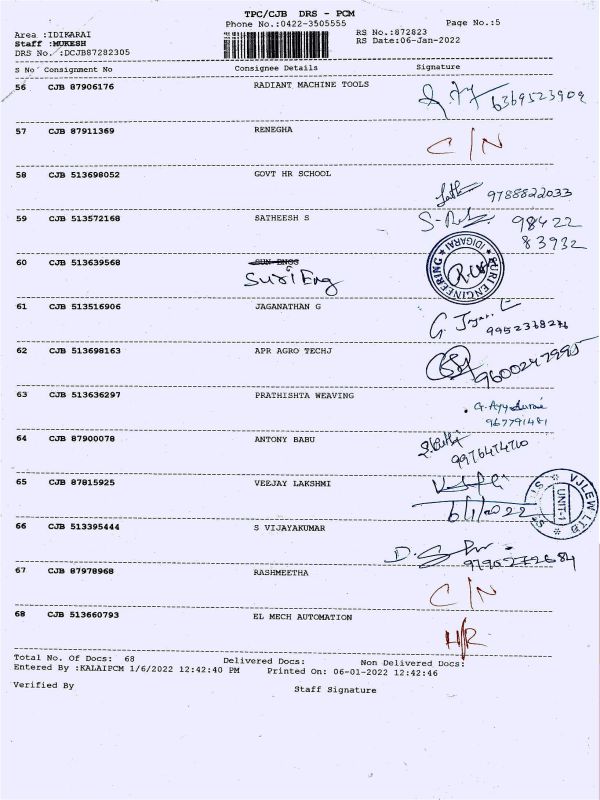 TPC/CJB DRS - PCM
Phone No.:0422-3505555
Page No.:5
Area :IDIKARAI
RS No.:872823
Staff :MUKESH
RS Date:06-Jan-2022
DRS No. :DCJB87282305
S No Consignment No Consignee Details Signature
56 CJB 87906176 RADIANT MACHINE TOOLS
6369523909
57 CJB 87911369 RENEGHA
C/N
58 CJB 513698052 GOVT HR SCHOOL
9788822033
59 CJB 513572168 SATHEESH S
98422
83932
60 CJB 513639568 SUN ENGG
Suri Eng
SURI ENGINEERING
IDIGARAI
61 CJB 513516906 JAGANATHAN G
62 CJB 513698163 APR AGRO TECHJ
9600247995
63 CJB 513636297 PRATHISHTA WEAVING
64 CJB 87900078 ANTONY BABU
65 CJB 87815925 VEEJAY LAKSHMI
6/1/2022
UNIT-II
66 CJB 513395444 S VIJAYAKUMAR
67 CJB 87978968 RASHMEETHA
C/N
68 CJB 513660793 EL MECH AUTOMATION
H/R
Total No. Of Docs: 68 Delivered Docs: Non Delivered Docs:
Entered By :KALAIPCM 1/6/2022 12:42:40 PM Printed On: 06-01-2022 12:42:46
Verified By Staff Signature